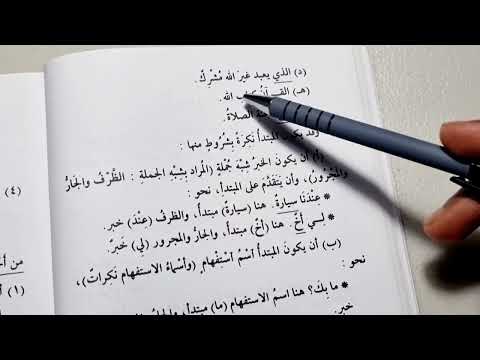 (د) الذي يعبد غيرَ الله مُشْرِكٌ.
(هـ) القرآنُ كتابُ الله.
الصلاةُ.
وقد يكون المبتدأ نَكِرَةً بشُرُوطٍ منها :
(أ) أن يكونَ الخبرُ شِبْهَ جُمْلةٍ (المراد بِشِبْهِ الجملةِ : الظَّرْفُ والجارُّ
والمجرُورُ)، وأن يَتَقَدَّمَ على المبتدإ، نحو :
* عِنْدَنا سيارةٌ. هنا (سيارةٌ) مبتدأ، والظرف (عِنْدَ) خبر.
* لِـي أخٌ. هنا (أخٌ) مبتدأ، والجارُّ والمجرور (لِي) خَبَرٌ.
(ب) أن يكونَ المبتدأ اسْمَ اسْتِفْهامٍ (وأسْمَاءُ الاستفهام نَكِراتٌ)،
نحو :
* ما بِكَ؟ هنا اسمُ الاستفهام (ما) مبتدأ، والجارُّ
خبر.
(٤)
من أ
(١)